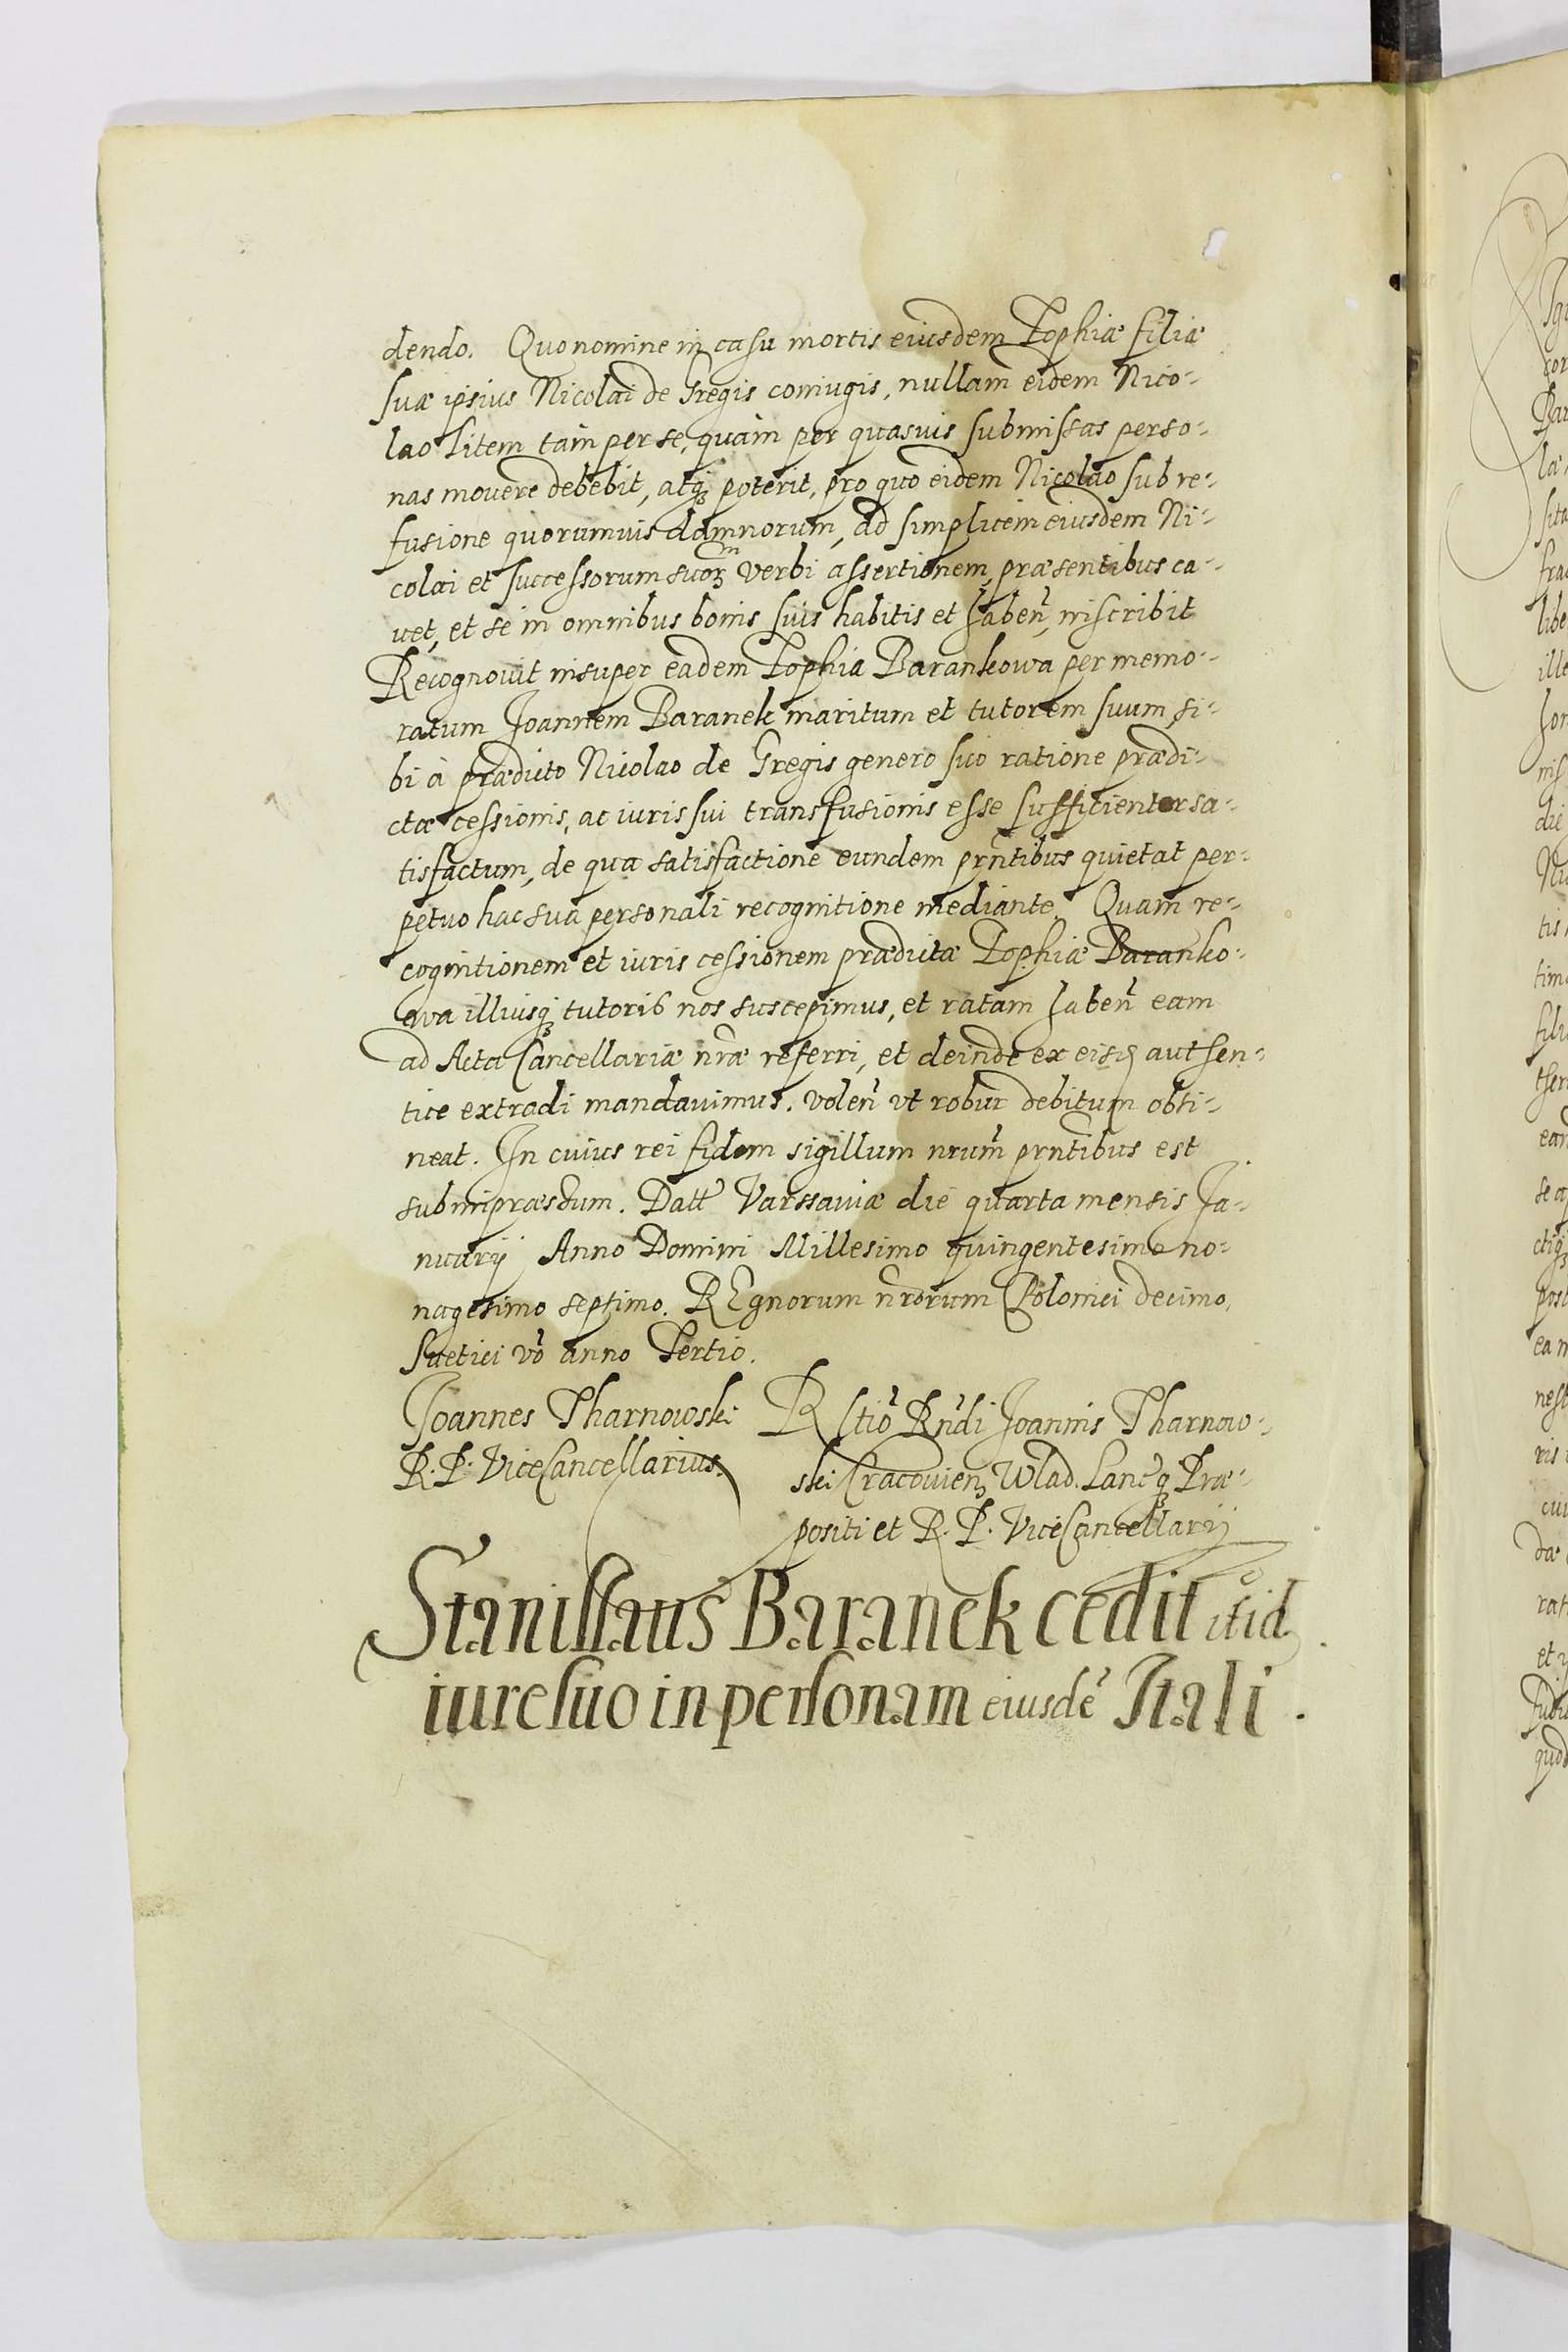 dendo. Quo nomine in casu mortis eiusdem Zophiæ filiæ
suæ ipsius Nicolai de Gregis coniugis, nullam eidem Nico-
lao litem tàm per se, quàm per quasuis submissas perso-
nas mouere debebit, atq₃ poterit, pro quo eidem Nicolao sub re-
fusione quorumuis damnorum, ad simplicem eiusdem Ni-
colai et successorum suorꝫ verbi assertionem, præsentibus ca-
uet, et se in omnibus bonis suis habitis et habeñ, inscribit
Recognouit insuper eadem Zophia Barankowa per memo-
ratum Joannem Baranek maritum et tutorem suum, si-
bi à prædicto Nicolao de Gregis genero suo ratione prædi-
ctæ cessionis, ac iuris sui transfusionis esse sufficienter sa-
tisfactum, de qua satisfactione eundem prñtibus quietat per-
petuo hac sua personali recognitione mediante. Quam re-
cognitionem et iuris cessionem prædictæ Zophiæ Baranko-
wa illiusq₃ tutoris nos suscepimus, et ratam habeñ eam
ad Acta Cancellariæ nr̃æ referri, et deinde ex eisd. authen-
tice extradi mandauimus. volen̄ vt robur debitum obti-
neat. In cuius rei fidem sigillum nrum̃ prntĩbus est
subimpræssum. Datt Varssauiæ die quarta mensis Ja-
nuarij Anno Domini Millesimo quingentesimo no-
nagesimo septimo. REgnorum nr̃orum Polonici decimo,
Suetici vo̊ anno Tertio.
Joannes Tharnowski R[e]l[a]tio Rn̄di Joannis Tharnow-
R. P. ViceCancellarius. ski Cracouien₃ Wlad. Lanc̄q₃ Præ-
positi et R. P. ViceCancellarij
Stanislaus Baranek cedit itid₃
iure suo in personam eiusdē Itali.